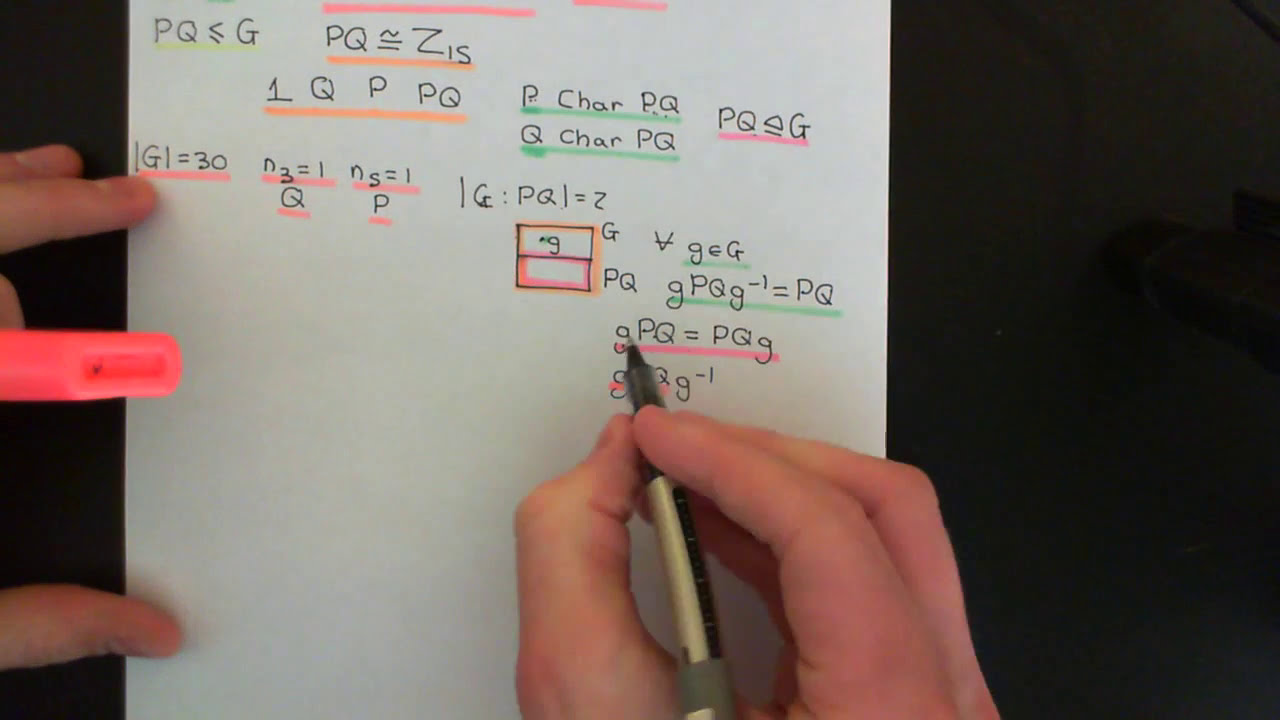 PQ ≤ G PQ ≅ Z₁₅
1 Q P PQ
P Char PQ
Q Char PQ
PQ ⊴ G
|G|=30 n₃=1 n₅=1
Q P
|G : PQ|=2
g G
PQ
∀ g∈G
gPQg⁻¹=PQ
gPQ = PQg
g Q g⁻¹